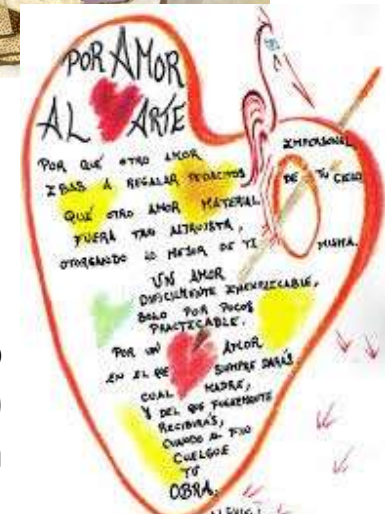 POR AMOR
AL ARTE
POR QUÉ OTRO AMOR
IBAS A REGALAR PEDACITOS DE TU CIELO
IMPERSONAL
QUÉ OTRO AMOR MATERIAL
FUERA TAN ALTRUISTA,
OTORGANDO LO MEJOR DE TI MISMA.
UN AMOR
DIFICILMENTE INEXPLICABLE,
SOLO POR POCOS
PRACTICABLE.
POR UN AMOR
EN EL QE SIEMPRE DARÁS,
CUAL MADRE,
Y DEL QE FUGAZMENTE
RECIBIRÁS,
CUANDO AL FIN
CUELGUE
TU
OBRA.